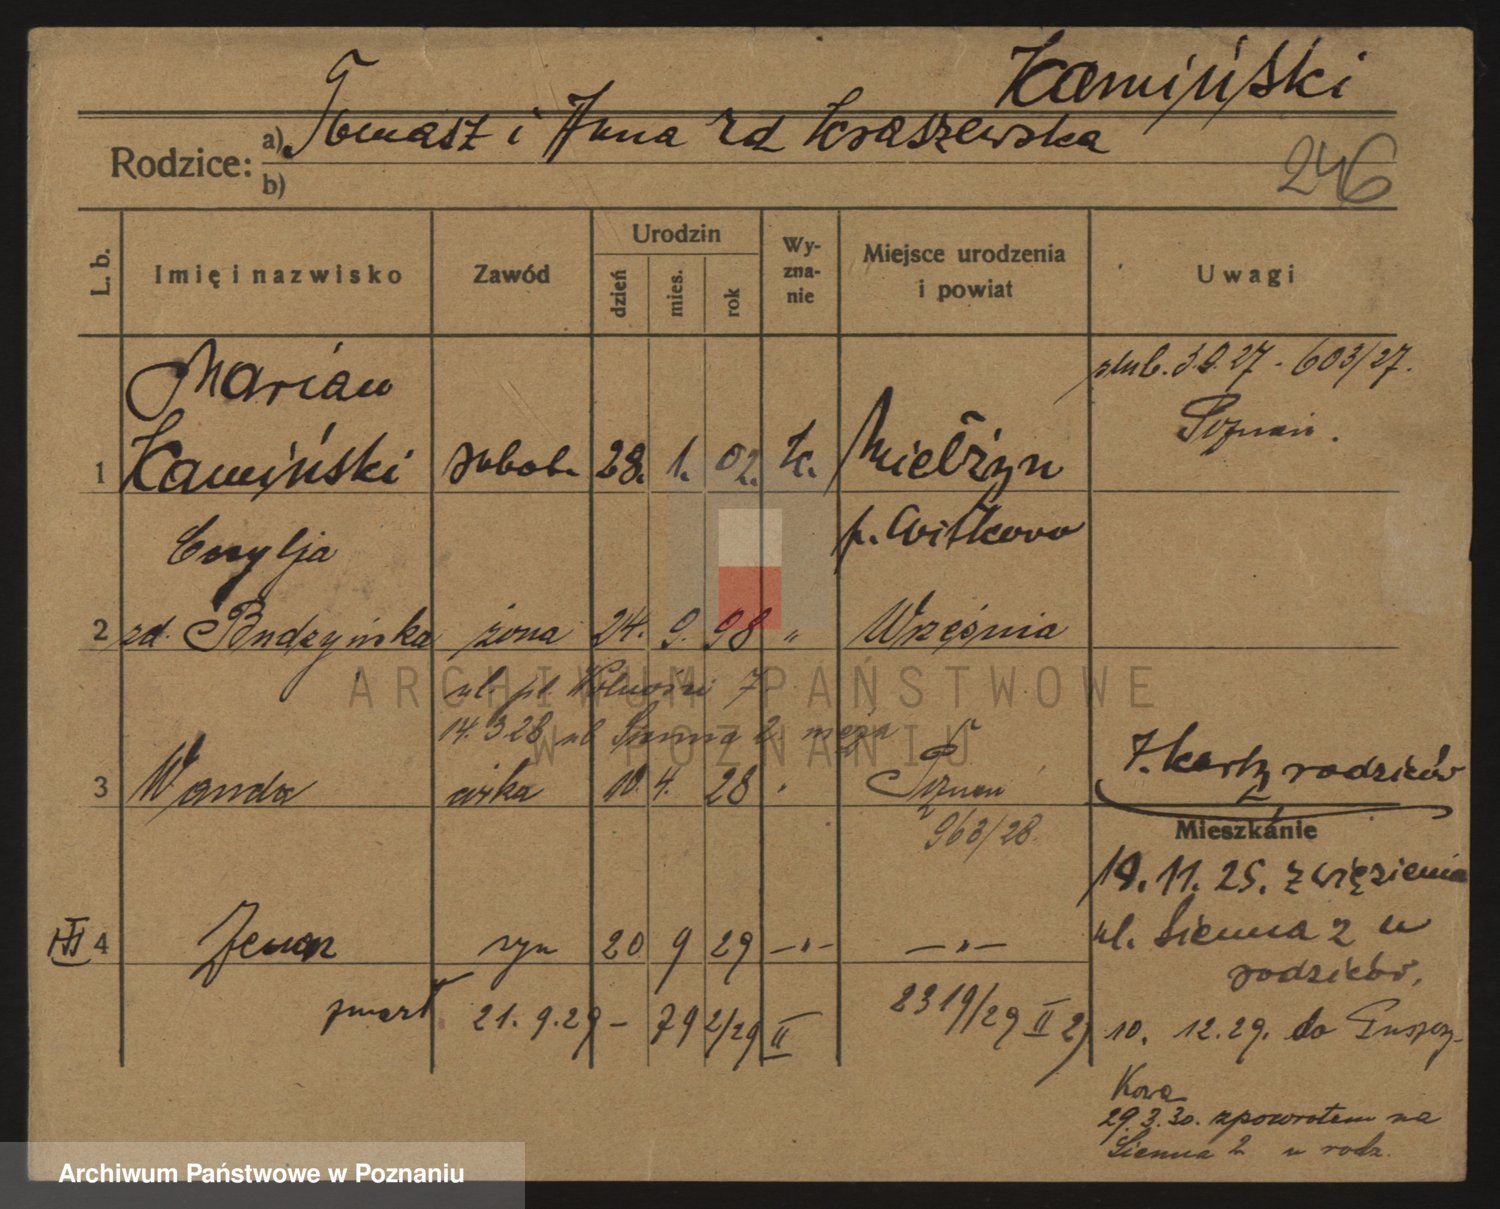 Kamiński
Rodzice: a) Tomasz i Anna zd Kraszewska
b)
246
L. b.
Imię i nazwisko
Zawód
Urodzin
dzień
mies.
rok
Wy-
zna-
nie
Miejsce urodzenia
i powiat
Uwagi
Marian
1 Kamiński robotn 28. 1. 02. k. Mielżyn
p. Witkowo
ślub. 3.9.27 - 603/27.
Poznań.
Cecylja
2 zd. Budzyńska żona 24. 9. 98 " Września
ul. pl. Wolności 7
14.3.28 ul Sienna 2 męża
3 Wanda córka 10. 4. 28 " Poznań
963/28.
z karty rodziców
Mieszkanie
19. 11. 25. z więzienia
ul. Sienna 2 u
rodziców,
III 4 Zenon syn 20 9 29 -"- -"-
zmarł 21. 9. 29 - 792/29 II
2319/29 II 2)
10. 12. 29. do
29.3.30. zpowrotem na
Sienna 2 u rodz.
ARCHIWUM PAŃSTWOWE
W POZNANIU
Archiwum Państwowe w Poznaniu